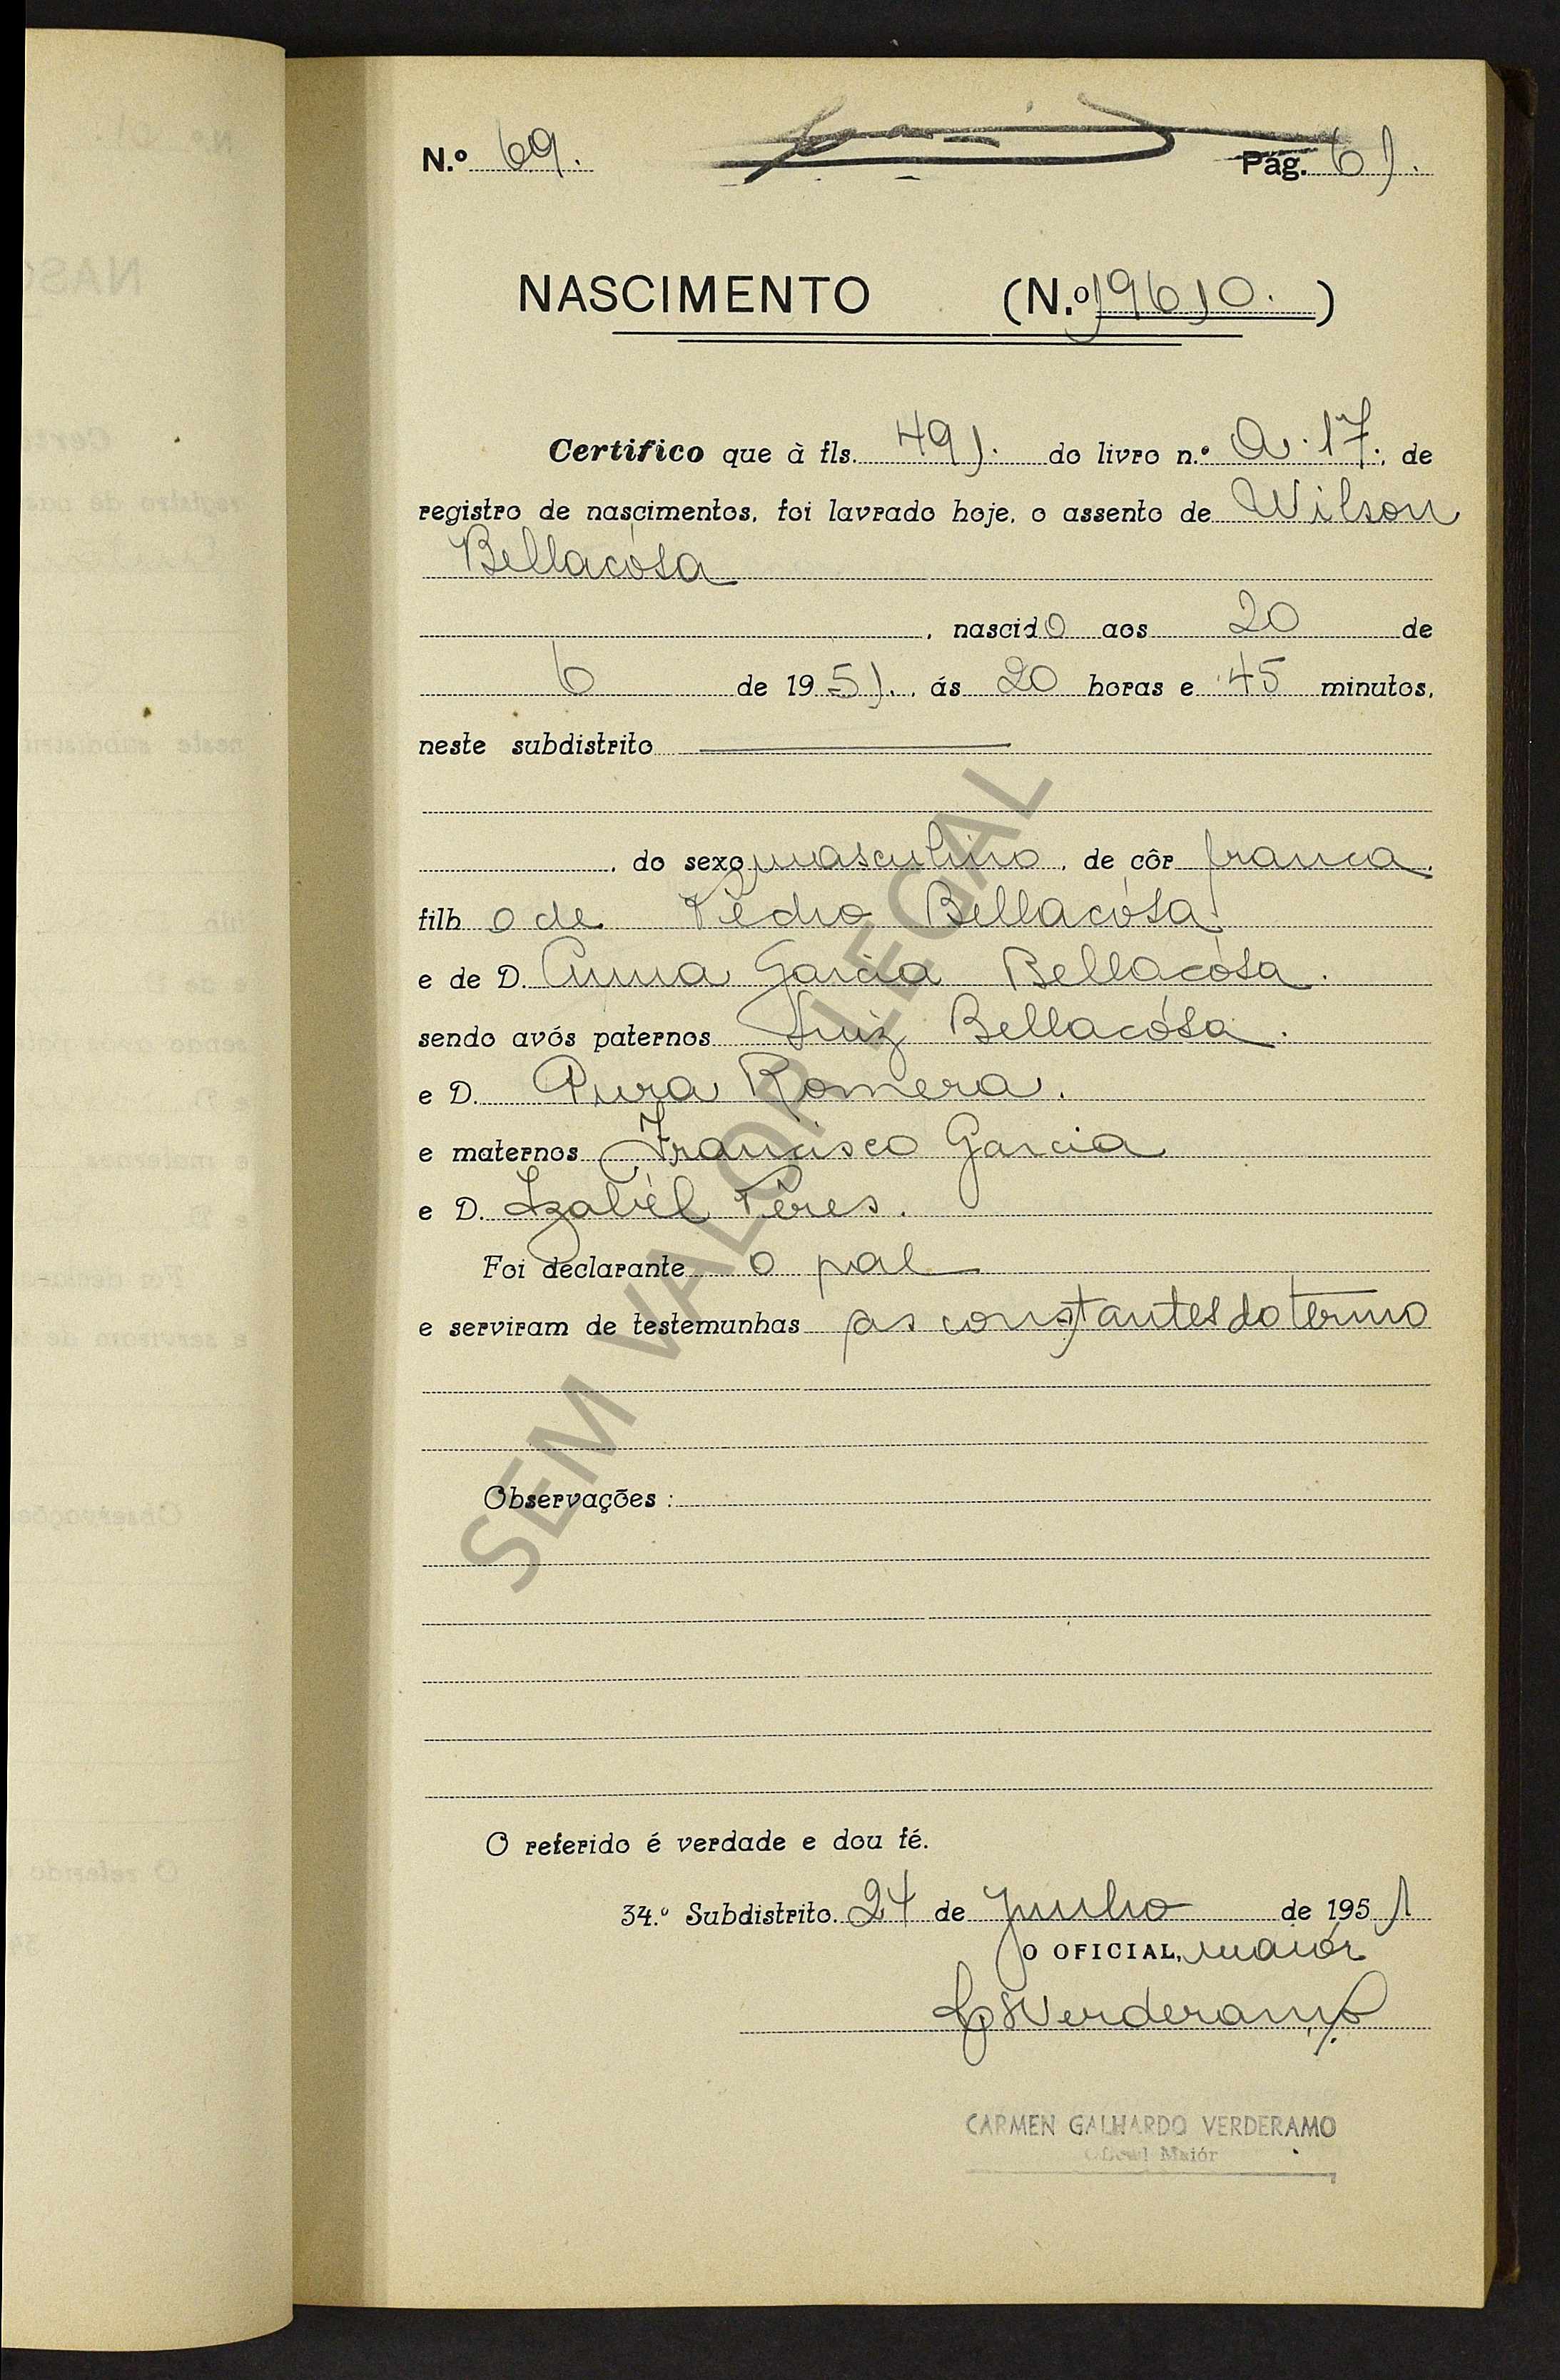 N.º 69. Pág. 61.
NASCIMENTO (N.º 19610.)
Certifico que à fls. 491. do livro n.º A.17., de
registro de nascimentos, foi lavrado hoje, o assento de Wilson
Bellacósa
, nascido aos 20 de
6 de 1951., ás 20 horas e 45 minutos,
neste subdistrito
, do sexo masculino, de côr branca,
filho de Pedro Bellacósa
e de D. Anna Garcia Bellacósa.
sendo avós paternos Luiz Bellacósa.
e D. Pura Romera.
e maternos Francisco Garcia
e D. Izabél Péres.
Foi declarante o pai
e serviram de testemunhas as constantes do termo
SEM VALOR LEGAL
Observações :
O referido é verdade e dou fé.
34.º Subdistrito. 24 de Junho de 1951
O OFICIAL, maiór
CGVerderamo
CARMEN GALHARDO VERDERAMO
Oficial Maiór